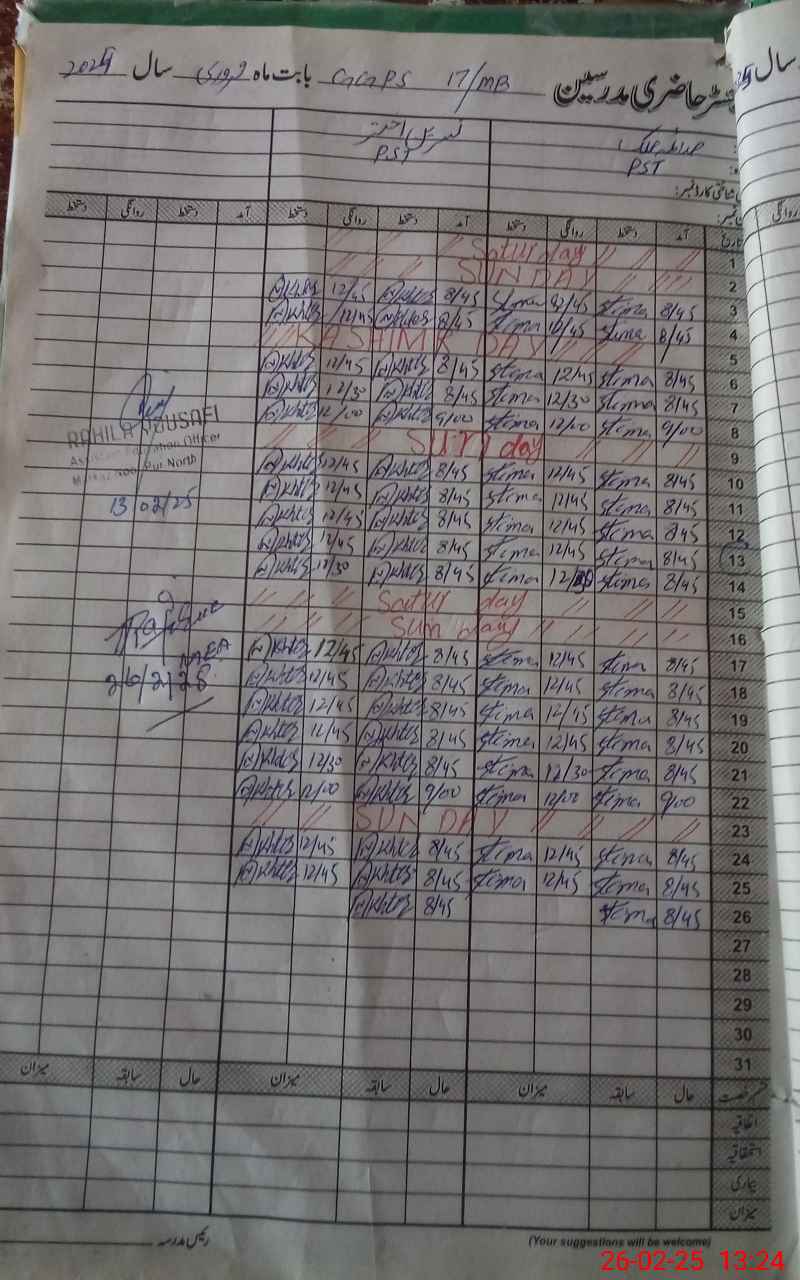 رجسٹر حاضری مدرسین GGPS 17/MB بابت ماہ فروری سال
PST PST
تاریخ آمد دستخط روانگی دستخط آمد دستخط روانگی دستخط آمد دستخط روانگی دستخط
1 // // Saturday // //
2 // // SUNDAY // //
3 8/45 stima 12/45 stima 8/45 Akhter 12/45 Akhter
4 8/45 stima 12/45 stima 8/45 Akhter 12/45 Akhter
5 KASHIMR DAY // // //
6 8/45 stima 12/45 stima 8/45 Akhter 12/45 Akhter
7 8/45 stima 12/30 stima 8/45 Akhter 12/30 Akhter
8 9/00 stima 12/00 stima 9/00 Akhter 12/00 Akhter
9 // // Sunday // //
10 8/45 stima 12/45 stima 8/45 Akhter 12/45 Akhter
11 8/45 stima 12/45 stima 8/45 Akhter 12/45 Akhter
12 8/45 stima 12/45 stima 8/45 Akhter 12/45 Akhter
13 8/45 stima 12/45 stima 8/45 Akhter 12/45 Akhter
14 8/45 stima 12/30 stima 8/45 Akhter 12/30 Akhter
15 // // Satur day // //
16 // // Sun day // //
17 8/45 stima 12/45 stima 8/45 Akhter 12/45 Akhter
18 8/45 stima 12/45 stima 8/45 Akhter 12/45 Akhter
19 8/45 stima 12/45 stima 8/45 Akhter 12/45 Akhter
20 8/45 stima 12/45 stima 8/45 Akhter 12/45 Akhter
21 8/45 stima 12/30 stima 8/45 Akhter 12/30 Akhter
22 9/00 stima 12/00 stima 9/00 Akhter 12/00 Akhter
23 // // SUN DAY // //
24 8/45 stima 12/45 stima 8/45 Akhter 12/45 Akhter
25 8/45 stima 12/45 stima 8/45 Akhter 12/45 Akhter
26 8/45 stima 8/45 Akhter
27
28
29
30
31
RAHILA YOUSAFI
Assistant Education Officer
Pur North
13/02/25
26/2/25
قسم رخصت حال سابقہ میزان حال سابقہ میزان حال سابقہ میزان
اتفاقیہ
استحقاقیہ
بیماری
میزان
رئیس مدرسہ
(Your suggestions will be welcome)
26-02-25 13:24
سال
روانگی